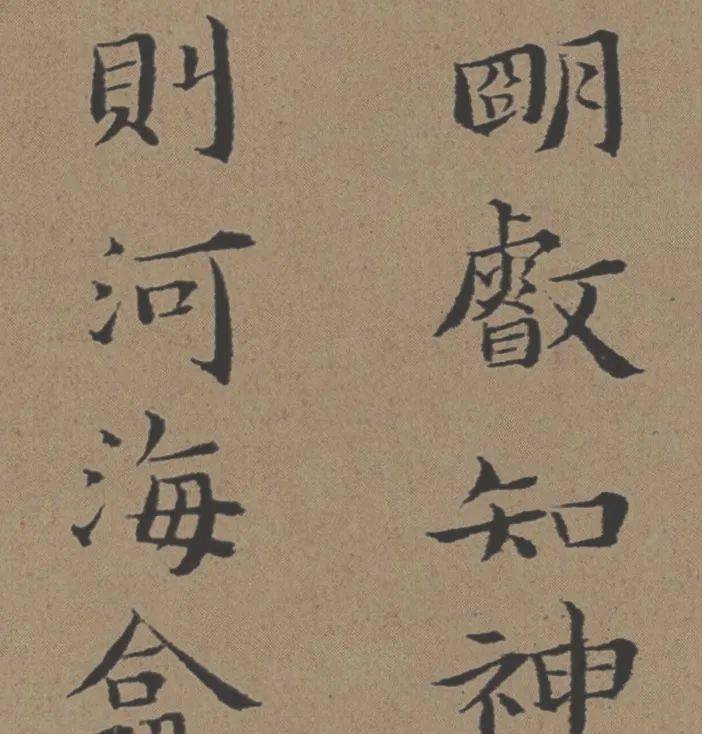 朙叡知神
則河海